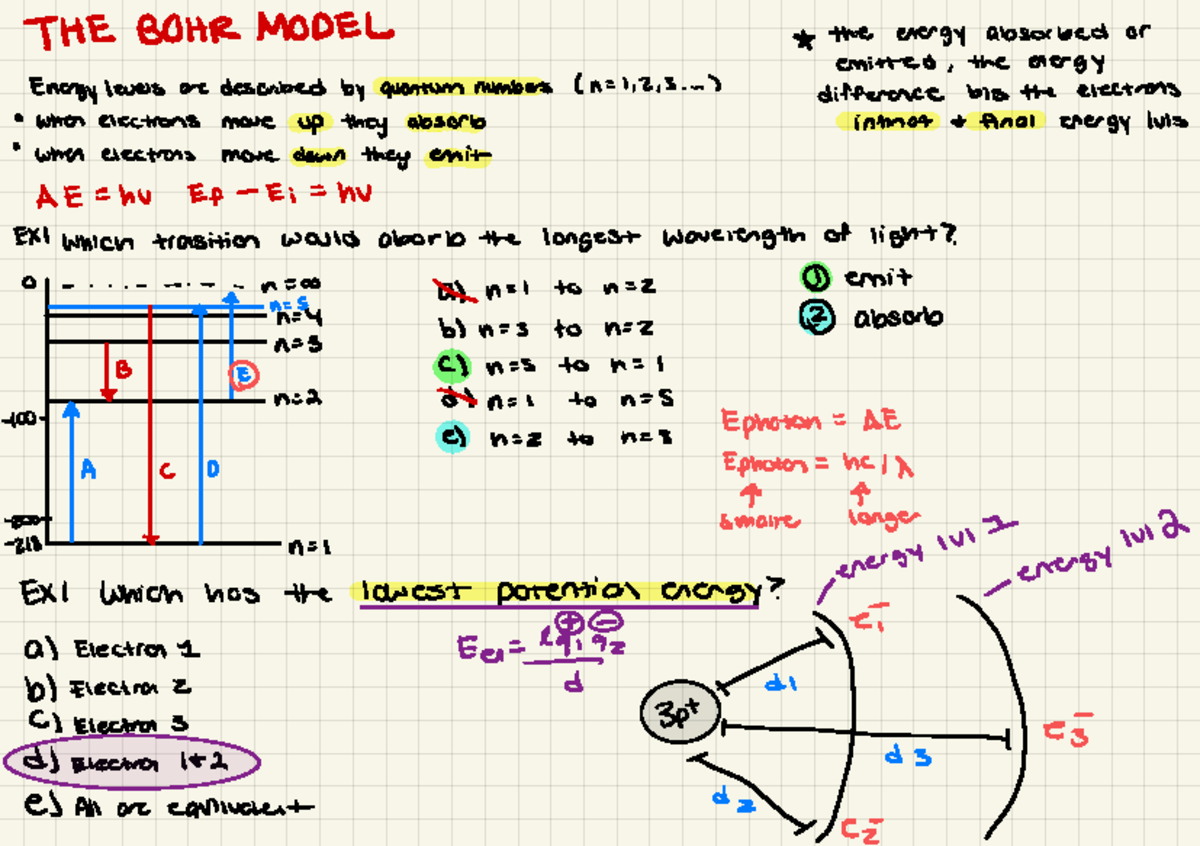 THE BOHR MODEL
Energy levels are described by quantum numbers (n=1,2,3...)
• when electrons move up they absorb
• when electrons move down they emit
ΔE = hν EF − Ei = hν
★ the energy absorbed or
emitted, the energy
difference btn the electrons
intinat + final energy lvls
EX1 Which trasition would aborb the longest wavelength of light?
0
n=∞
n=5
n=4
n=3
B
E
n=2
-100
A
C
D
-218
n=1
a) n=1 to n=2
b) n=3 to n=2
c) n=5 to n=1
d) n=1 to n=5
e) n=2 to n=3
① emit
② absorb
Ephoton = ΔE
Ephoton = hc/λ
longer
energy lvl 1
energy lvl 2
EX1 Which has the lowest potential energy?
a) Electron 1
b) Electron 2
c) Electron 3
d) Electron 1+2
e) All are equivalent
+ −
Eel = kq1q2
d
3p+
d1
d3
d2
e1−
e3−
e2−